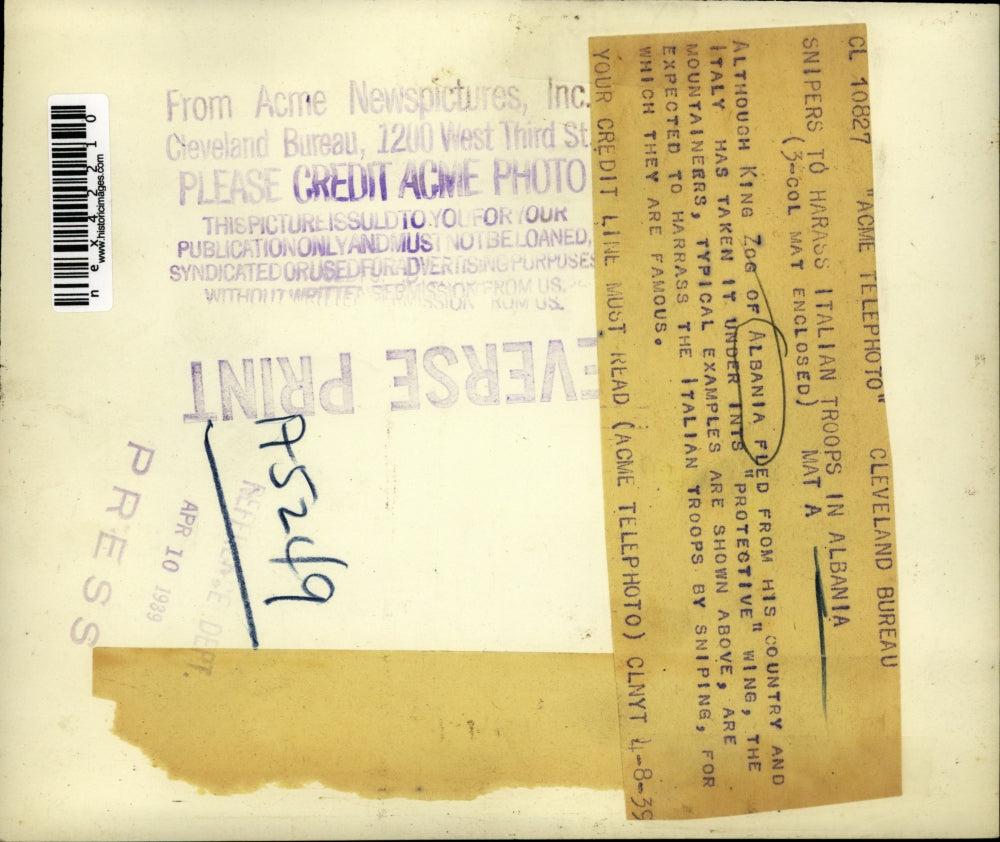 CL 10827 "ACME TELEPHOTO" CLEVELAND BUREAU
SNIPERS TO HARASS ITALIAN TROOPS IN ALBANIA
(3-COL MAT ENCLOSED) MAT A
ALTHOUGH KING ZOG OF ALBANIA FLED FROM HIS COUNTRY AND
ITALY HAS TAKEN IT UNDER INTS "PROTECTIVE" WING, THE
MOUNTAINERRS, TYPICAL EXAMPLES ARE SHOWN ABOVE, ARE
EXPECTED TO HARRASS THE ITALIAN TROOPS BY SNIPING, FOR
WHICH THEY ARE FAMOUS.
YOUR CREDIT LINE MUST READ (ACME TELEPHOTO) CLNYT 4-8-39
From Acme Newspictures, Inc.
Cleveland Bureau, 1200 West Third St.
PLEASE CREDIT ACME PHOTO
THIS PICTURE IS SOLD TO YOU FOR YOUR
PUBLICATION ONLY AND MUST NOT BE LOANED,
SYNDICATED OR USED FOR ADVERTISING PURPOSES
WITHOUT WRITTEN PERMISSION FROM US.
EVERSE PRINT
A5249
REFERENCE DEPT.
APR 10 1939
PRESS
nex42210
www.historicimages.com